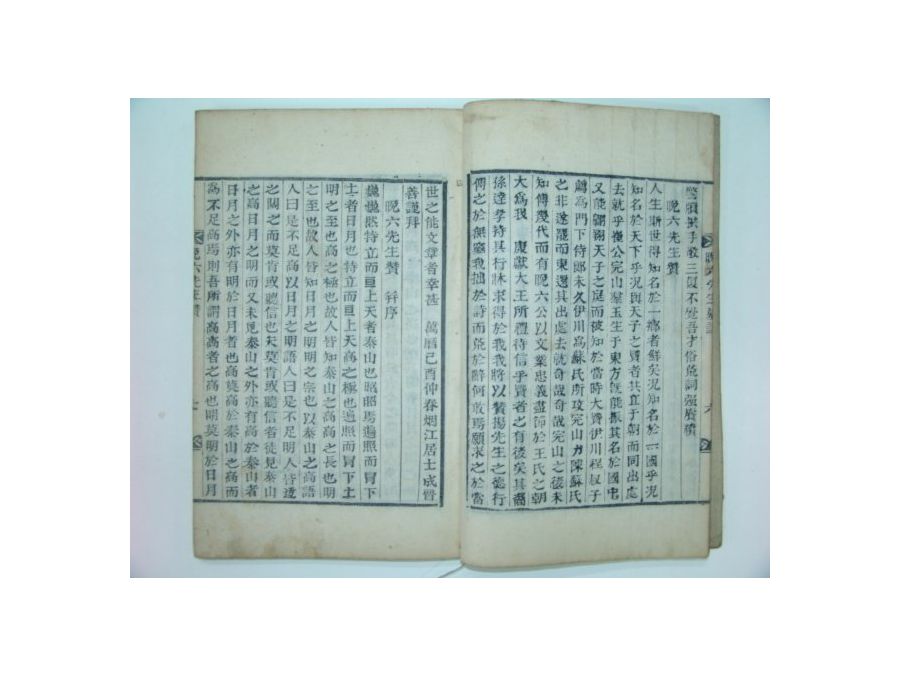 晩六先生贊
人生斯世得知名於一鄕者鮮矣況知名於一國乎況
知名於天下乎況與天子之賢者共直于朝而同出處
去就乎崔公完山
生于東方旣能振其名於國中
又能翶翔天子之庭而彼知於當時大賢伊川程叔子
薦爲門下侍郞未久伊川爲蘇氏所攻完山力陳蘇氏
之非遂罷而東還其出處去就奇哉奇哉完山之後未
知傳幾代而有晩六公以文業忠義盡節於王氏之朝
大爲我 康獻大王所禮待信乎賢者之有後矣其裔
孫達孝持其行牀求得於我我將以贊揚先生之德行
傳之於無窮我拙於詩而
於辭何敢焉願求之於當
世之能文章者幸甚 萬曆己酉仲春烟江居士成晋
善謹拜
晩六先生贊 幷序
巍巍然特立而亘上天者泰山也昭昭焉遍照而冐下
土者日月也特立而亘上天高之極也遍照而冐下土
明之至也高之極也故人皆知泰山之高高之長也明
之至也故人皆知日月之明明之宗也以泰山之高語
人曰是不足高以日月之明語人曰是不足明人皆
之闊之而莫肯或聽信也夫莫肯或聽信者徒見泰山
之高日月之明而又未見泰山之外亦有高於泰山者
日月之外亦有明於日月者也高莫高於泰山之高而
高不足高焉則吾所謂高高者之高也明莫明於日月
晩六先生贊